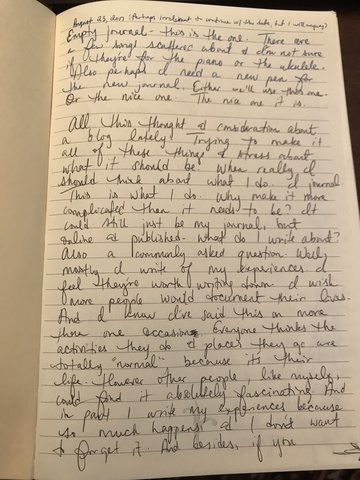 August 23, 2017 (Perhaps irrelevant to continue w/ the date, but I will anyway)
Empty journal - this is the one. There are
a few songs scattered about & I'm not sure
if they're for the piano or the ukulele.
Also perhaps I need a new pen for
the new journal. Either we'll use this one.
Or the nice one. The nice one it is.
All this thought & consideration about
a blog lately! Trying to make it
all of these things & stress about
what it should be! When really I
should think about what I do. I journal
This is what I do. Why make it more
complicated than it needs to be? It
could still just be my journal, but
online & published. What do I write about?
Also a commonly asked question. Well,
mostly I write of my experiences I
feel they're worth writing down. I wish
more people would document their lives.
And I know I've said this on more
than one occasion. Everyone thinks the
activities they do & places they go are
totally "normal", because it's their
life. However other people, like myself,
could find it absolutely fascinating. And
in part I write my experiences because
so much happens & I don't want
to forget it. And besides, if you